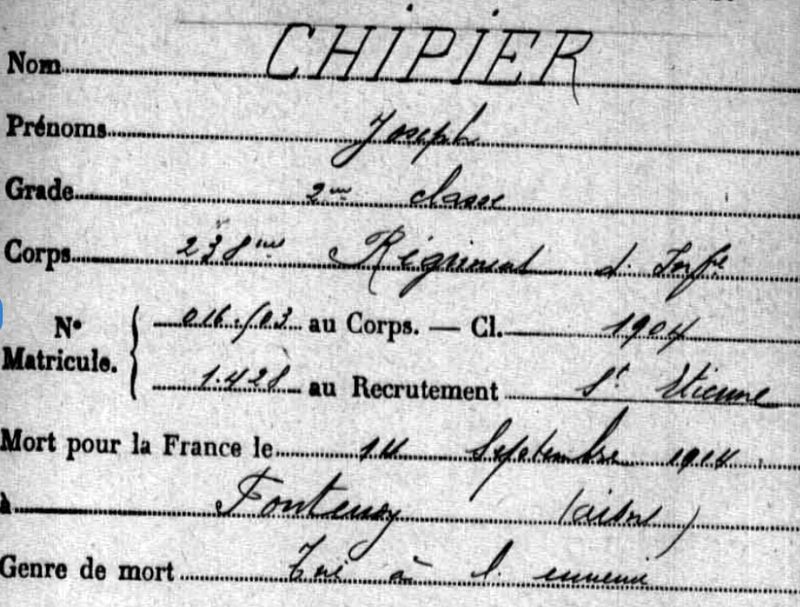 Nom CHIPIER
Prénoms Joseph
Grade 2me classe
Corps 238me Régiment d'Infrie
N° Matricule. 016/03 au Corps. — Cl. 1904
1.428 au Recrutement St Etienne
Mort pour la France le 14 Septembre 1914
à Fontenoy (aisne)
Genre de mort Tué à l'ennemi